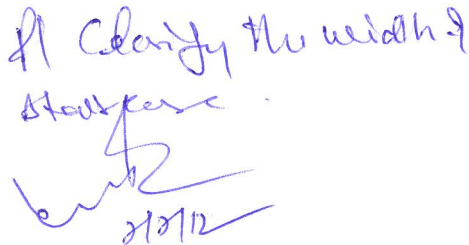 Pl Clarify the width of
staircase.
2/2/12